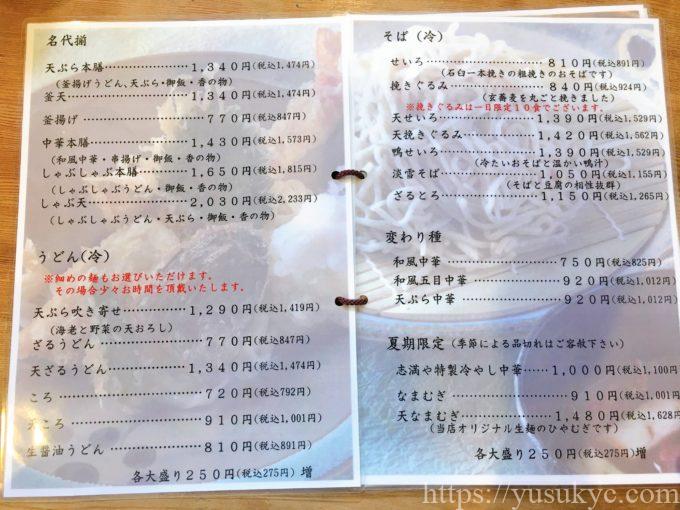 名代揃
天ぷら本膳………………1,340円(税込1,474円)
(釜揚げうどん、天ぷら・御飯・香の物)
釜天………………………1,340円(税込1,474円)
釜揚げ………………………770円(税込847円)
中華本膳…………………1,430円(税込1,573円)
(和風中華・串揚げ・御飯・香の物)
しゃぶしゃぶ本膳………1,650円(税込1,815円)
(しゃぶしゃぶうどん・御飯・香の物)
しゃぶ天…………………2,030円(税込2,233円)
(しゃぶしゃぶうどん・天ぷら・御飯・香の物)
うどん(冷)
※細めの麺もお選びいただけます。
その場合少々お時間を頂戴いたします。
天ぷら吹き寄せ…………1,290円(税込1,419円)
(海老と野菜の天おろし)
ざるうどん…………………770円(税込847円)
天ざるうどん……………1,340円(税込1,474円)
ころ…………………………720円(税込792円)
天ころ………………………910円(税込1,001円)
生醤油うどん………………810円(税込891円)
各大盛り250円(税込275円)増
そば(冷)
せいろ………………………810円(税込891円)
(石臼一本挽きの粗挽きのおそばです)
挽きぐるみ…………………840円(税込924円)
(玄蕎麦を丸ごと挽きました)
※挽きぐるみは一日限定10食でございます。
天せいろ…………………1,390円(税込1,529円)
天挽きぐるみ……………1,420円(税込1,562円)
鴨せいろ…………………1,390円(税込1,529円)
(冷たいおそばと温かい鴨汁)
淡雪そば…………………1,050円(税込1,155円)
(そばと豆腐の相性抜群)
ざるとろ…………………1,150円(税込1,265円)
変わり種
和風中華……………………750円(税込825円)
和風五目中華………………920円(税込1,012円)
天ぷら中華…………………920円(税込1,012円)
夏期限定(季節による品切れはご容赦下さい)
志満や特製冷やし中華……1,000円(税込1,100円)
なまむぎ……………………910円(税込1,001円)
天なまむぎ………………1,480円(税込1,628円)
(当店オリジナル生麺のひやむぎです)
各大盛り250円(税込275円)増
https://yusukyc.com